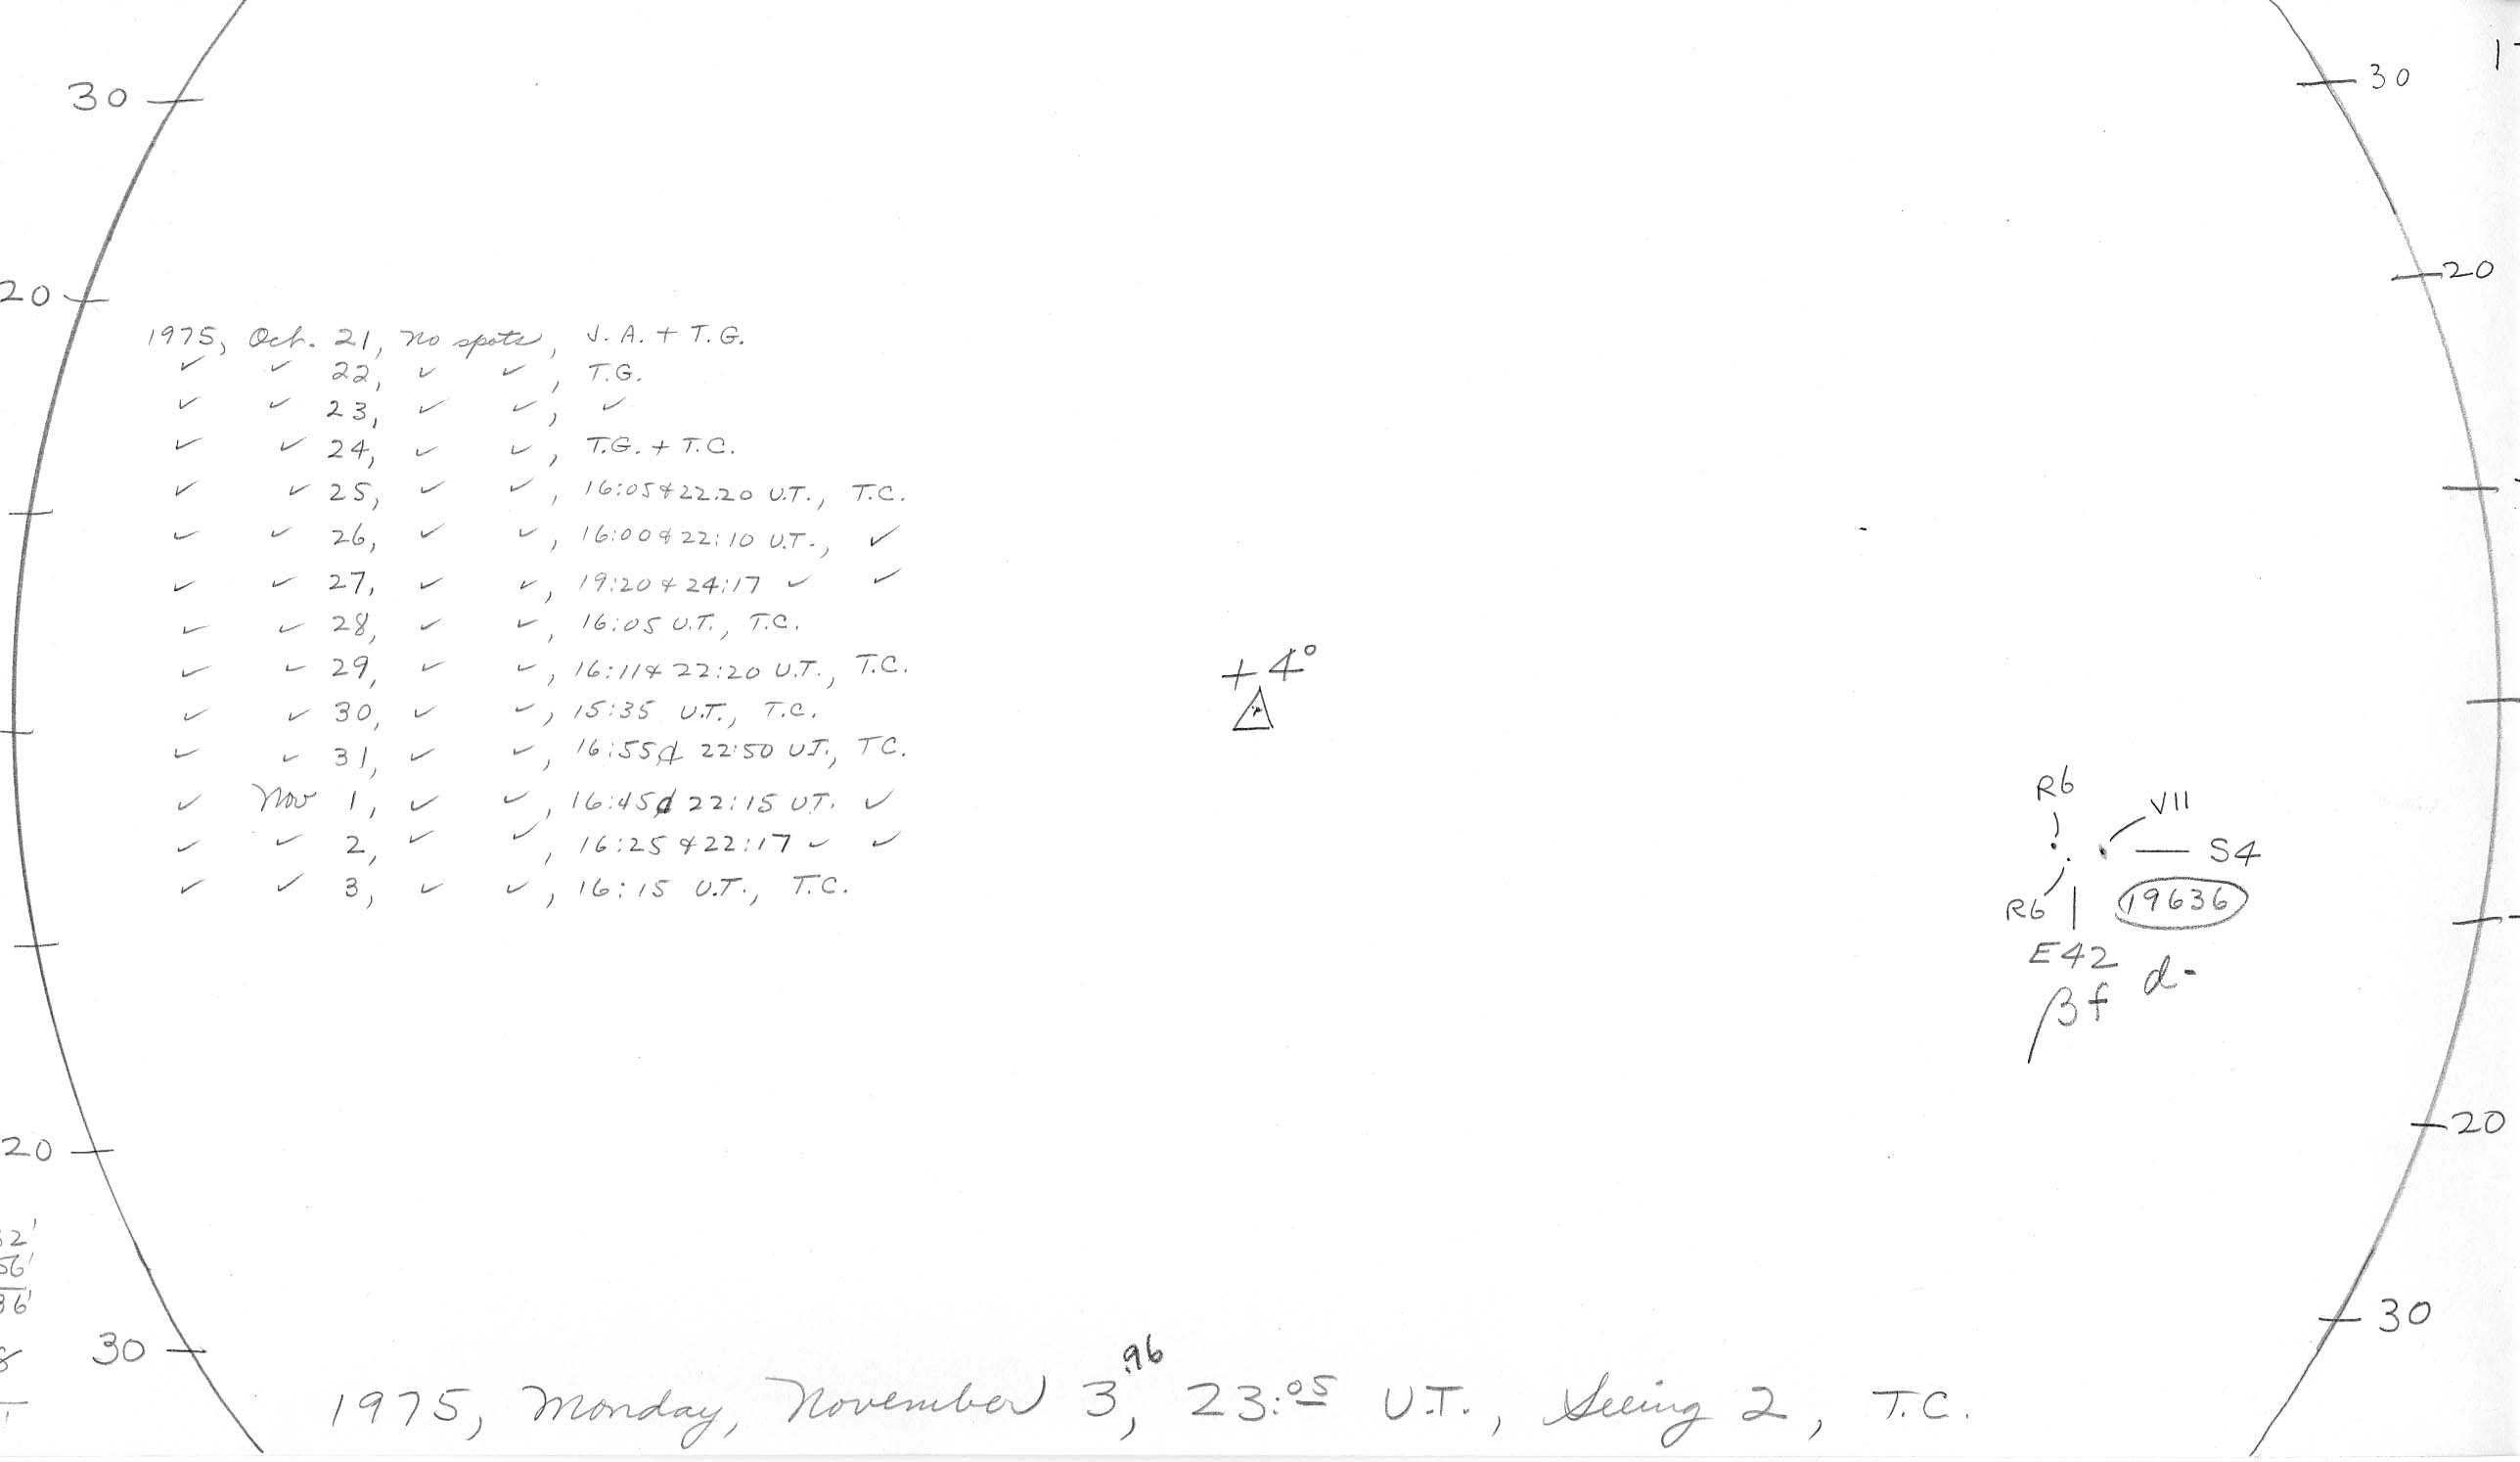 30
30
20
20
1975, Oct. 21, no spots, J. A. + T.G.
✓ ✓ 22, ✓ ✓, T.G.
✓ ✓ 23, ✓ ✓, ✓
✓ ✓ 24, ✓ ✓, T.G. + T.C.
✓ ✓ 25, ✓ ✓, 16:05 & 22.20 U.T., T.C.
✓ ✓ 26, ✓ ✓, 16:00 & 22:10 U.T., ✓
✓ ✓ 27, ✓ ✓, 19:20 & 24:17 ✓ ✓
✓ ✓ 28, ✓ ✓, 16:05 U.T., T.C.
✓ ✓ 29, ✓ ✓, 16:11 & 22:20 U.T., T.C.
✓ ✓ 30, ✓ ✓, 15:35 U.T., T.C.
✓ ✓ 31, ✓ ✓, 16:55 & 22:50 U.T., T.C.
✓ Nov 1, ✓ ✓, 16:45 & 22:15 U.T. ✓
✓ ✓ 2, ✓ ✓, 16:25 & 22:17 ✓ ✓
✓ ✓ 3, ✓ ✓, 16:15 U.T., T.C.
+4°
R6
VII
S4
R6
19636
E42
βf d-
20
20
52'
56'
36'
30
30
.96
1975, Monday, November 3, 23:05 U.T., Seeing 2, T.C.